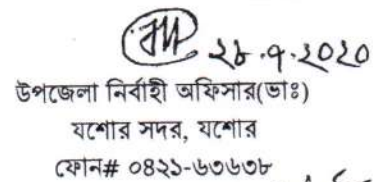 ২৮.৭.২০২০
উপজেলা নির্বাহী অফিসার(ভাঃ)
যশোর সদর, যশোর
ফোন# ০৪২১-৬৩৬৩৮